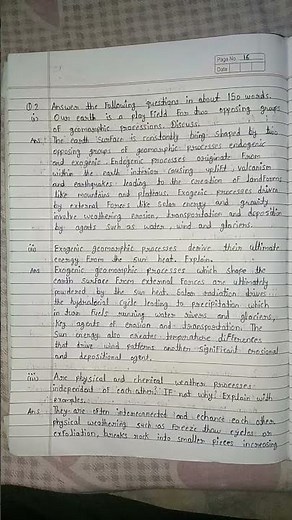 Page No. 16
Date
Q.2 Answer the following questions in about 150 words.
i) Our earth is a play field for two opposing groups
of geomorphic processions. Discuss.
Ans: The earth surface is constantly being shaped by two
opposing groups of geomorphic processes endogenic
and exogenic. Endogenic processes originate from
within the earth interior causing uplift, volcanism
and earthquakes leading to the creation of landforms
like mountains and plateaus. Exogenic processes driven
by external forces like solar energy and gravity
involve weathering erosion, transportation and deposition
by agents such as water wind and glaciers.
ii) Exogenic geomorphic processes derive their ultimate
energy from the sun heat. Explain.
Ans Exogenic geomorphic processes which shape the
earth surface from external forces are ultimately
powered by the sun heat. Solar radiation drives
the hydrological cycle leading to precipitation which
in turn fuels running water rivers and glaciers,
key agents of erosion and transportation. The
Sun energy also creates temperature differences
that drive wind patterns another significant erosional
and depositional agent.
iii) Are physical and chemical weather processes
independent of each other? If not why? Explain with
examples.
Ans: They are often interconnected and echance each other
physical weathering such as freeze thaw cycles or
exfoliation, breaks rock into smaller pieces increasing